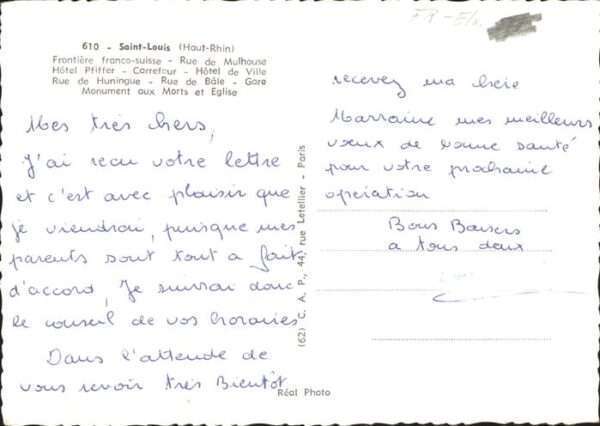 610 - Saint-Louis (Haut-Rhin)
Frontière franco-suisse - Rue de Mulhouse
Hôtel Pfiffer - Carrefour - Hôtel de Ville
Rue de Huningue - Rue de Bâle - Gare
Monument aux Morts et Eglise
Mes très chers,
J'ai recu votre lettre
et c'est avec plaisir que
je viendrai, puisque mes
parents sont tout a fait
d'accord, Je suivrai donc
le conseil de vos horaires
Dans l'attende de
vous revoir très Bientôt
(62) C. A. P., 44, rue Letellier - Paris
Réel Photo
recevez ma chère
Marraine mes meilleurs
voeux de bonne santé
pour votre prochaine
opération
Bons Baisers
a tous deux